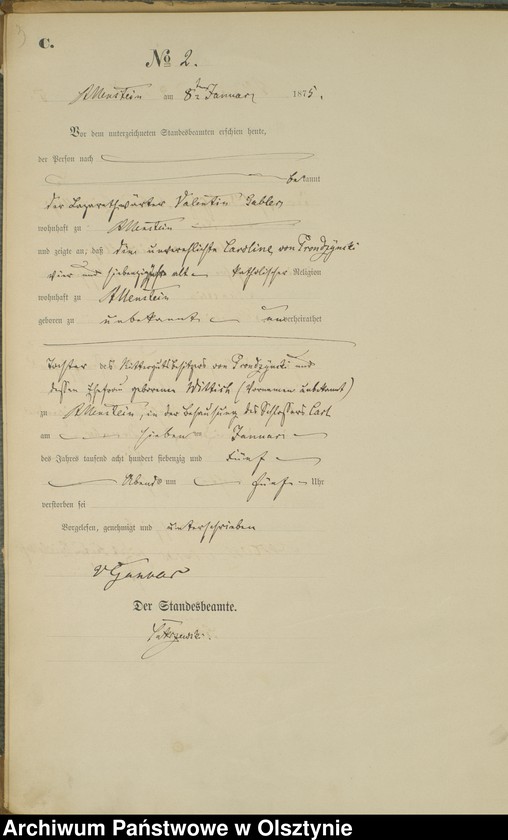 C.
No 2.
Allenstein am 8ten Januar 1875.
Vor dem unterzeichneten Standesbeamten erschien heute,
der Person nach
bekannt
der Lazarethwärter Valentin
wohnhaft zu Allenstein
und zeigte an, daß die unverehlichte Caroline von Prondzynski
vier und siebenzig alt katholischer Religion
wohnhaft zu Allenstein
geboren zu unbekannt unverheirathet
Tochter des Rittergutsbesitzers von Prondzynski und
dessen Ehefrau geborenen Wittich (Vornamen unbekannt)
zu Allenstein, in der Behausung des Schlossers Carl
am sieben ten Januar
des Jahres tausend acht hundert siebenzig und fünf
Abends um fünf Uhr
verstorben sei
Vorgelesen, genehmigt und unterschrieben
Der Standesbeamte.
Archiwum Państwowe w Olsztynie